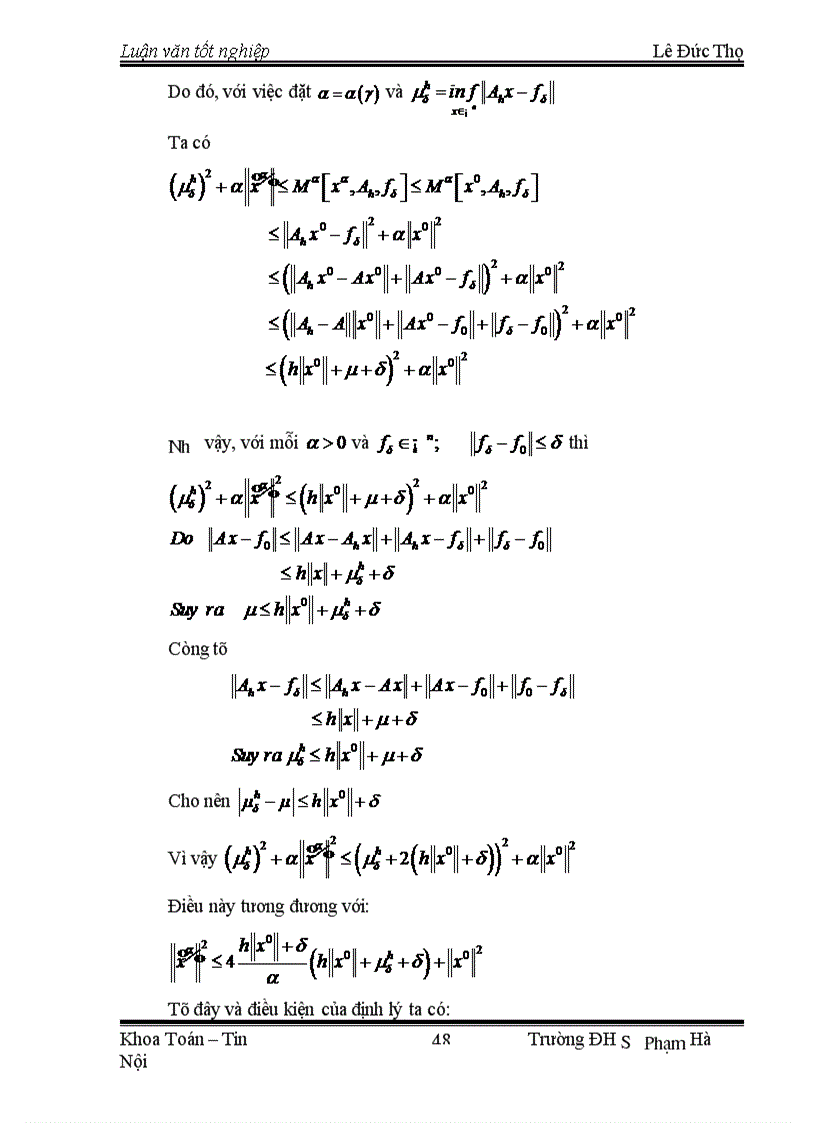 Luận văn tốt nghiệp Lê Đức Thọ
Do đó, với việc đặt α = α(r) và μ_δ^h = inf_{x∈¡ ⁿ} ‖A_h x − f_δ‖
Ta có
(μ_δ^h)² + α‖x^α‖ ≤ M^α[x^α, A_h, f_δ] ≤ M^α[x⁰, A_h, f_δ]
≤ ‖A_h x⁰ − f_δ‖² + α‖x⁰‖²
≤ (‖A_h x⁰ − Ax⁰‖ + ‖Ax⁰ − f_δ‖)² + α‖x⁰‖²
≤ (‖A_h − A‖‖x⁰‖ + ‖Ax⁰ − f₀‖ + ‖f_δ − f₀‖)² + α‖x⁰‖²
≤ (h‖x⁰‖ + μ + δ)² + α‖x⁰‖²
Nh vậy, với mỗi α > 0 và f_δ ∈ ¡ ⁿ; ‖f_δ − f₀‖ ≤ δ thì
(μ_δ^h)² + α‖x^α‖² ≤ (h‖x⁰‖ + μ + δ)² + α‖x⁰‖²
Do ‖Ax − f₀‖ ≤ ‖Ax − A_h x‖ + ‖A_h x − f_δ‖ + ‖f_δ − f₀‖
≤ h‖x‖ + μ_δ^h + δ
Suy ra μ ≤ h‖x⁰‖ + μ_δ^h + δ
Còng tõ
‖A_h x − f_δ‖ ≤ ‖A_h x − Ax‖ + ‖Ax − f₀‖ + ‖f₀ − f_δ‖
≤ h‖x‖ + μ + δ
Suy ra μ_δ^h ≤ h‖x⁰‖ + μ + δ
Cho nên |μ_δ^h − μ| ≤ h‖x⁰‖ + δ
Vì vậy (μ_δ^h)² + α‖x^α‖² ≤ (μ_δ^h + 2(h‖x⁰‖ + δ))² + α‖x⁰‖²
Điều này tương đương với:
‖x^α‖² ≤ 4 (h‖x⁰‖ + δ)/α (h‖x⁰‖ + μ_δ^h + δ) + ‖x⁰‖²
Tõ đây và điều kiện của định lý ta có:
Khoa Toán – Tin 48 Trường ĐH S Phạm Hà
Nội